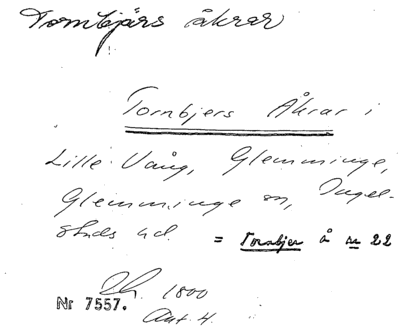 Tornbjärs åkrar
Tornbjers Åkrar i
Lille Vång, Glemminge,
Glemminge sn, Ingel-
stads hd. = Tornbjer å nr 22
1800
Nr 7557. Akt. 4.